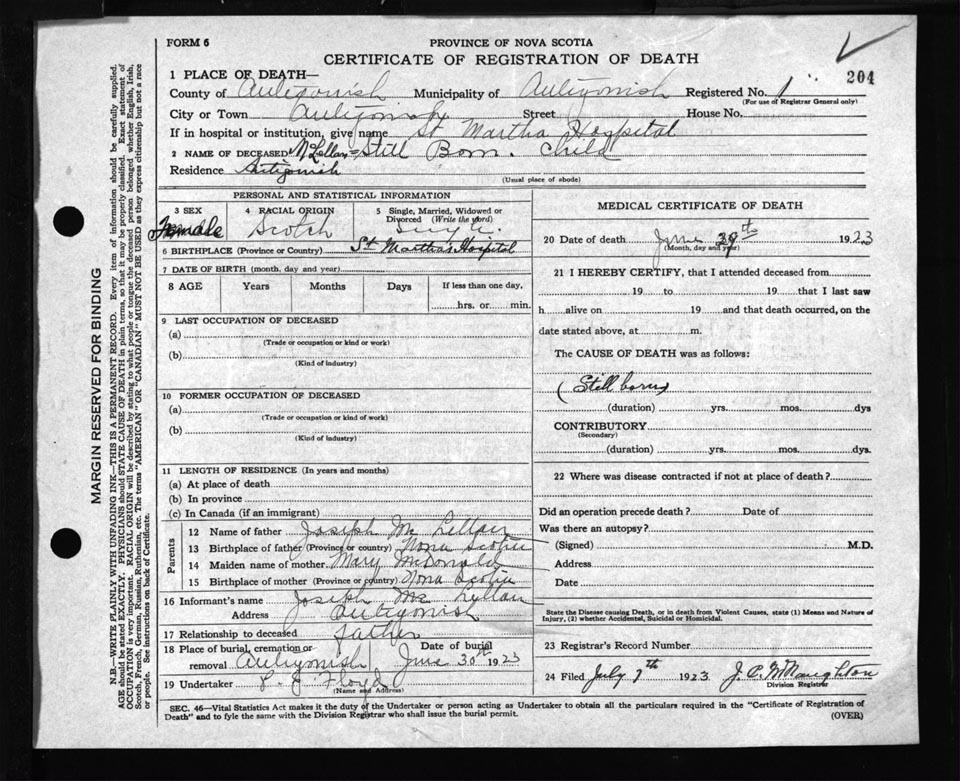 FORM 6
PROVINCE OF NOVA SCOTIA
CERTIFICATE OF REGISTRATION OF DEATH
204
1 PLACE OF DEATH—
County of Antigonish Municipality of Antigonish Registered No. 1
(For use of Registrar General only)
City or Town Antigonish Street House No.
If in hospital or institution, give name St Martha Hospital
2 NAME OF DECEASED McLellan = Still Born. Child
Residence Antigonish
(Usual place of abode)
PERSONAL AND STATISTICAL INFORMATION
3 SEX Female
4 RACIAL ORIGIN Scotch
5 Single, Married, Widowed or Divorced (Write the word) Single
6 BIRTHPLACE (Province or Country) St Martha's Hospital
7 DATE OF BIRTH (month, day and year)
8 AGE Years Months Days If less than one day,
hrs. or min.
9 LAST OCCUPATION OF DECEASED
(a)
(Trade or occupation or kind or work)
(b)
(Kind of industry)
10 FORMER OCCUPATION OF DECEASED
(a)
(Trade or occupation or kind of work)
(b)
(Kind of industry)
11 LENGTH OF RESIDENCE (In years and months)
(a) At place of death
(b) In province
(c) In Canada (if an immigrant)
Parents
12 Name of father Joseph Mc Lellan
13 Birthplace of father (Province or country) Nova Scotia
14 Maiden name of mother Mary McDonald
15 Birthplace of mother (Province or country) Nova Scotia
16 Informant's name Joseph Mc Lellan
Address Antigonish
17 Relationship to deceased father
18 Place of burial, cremation or removal Antigonish
Date of burial June 30th 1923
19 Undertaker Floyd
(Name and Address)
MEDICAL CERTIFICATE OF DEATH
20 Date of death June 29th 1923
(Month, day and year)
21 I HEREBY CERTIFY, that I attended deceased from
19 to 19 that I last saw
h alive on 19 and that death occurred, on the
date stated above, at m.
The CAUSE OF DEATH was as follows:
(Still born)
(duration) yrs. mos. dys
CONTRIBUTORY
(Secondary)
(duration) yrs. mos. dys.
22 Where was disease contracted if not at place of death?
Did an operation precede death? Date of
Was there an autopsy?
(Signed) M.D.
Address
Date
State the Disease causing Death, or in death from Violent Causes, state (1) Means and Nature of
Injury, (2) whether Accidental, Suicidal or Homicidal.
23 Registrar's Record Number
24 Filed July 7th 1923 J. C. McNaughton
Division Registrar
SEC. 46—Vital Statistics Act makes it the duty of the Undertaker or person acting as Undertaker to obtain all the particulars required in the "Certificate of Registration of
Death" and to fyle the same with the Division Registrar who shall issue the burial permit.
(OVER)
MARGIN RESERVED FOR BINDING
N.B.—WRITE PLAINLY WITH UNFADING INK—THIS IS A PERMANENT RECORD. Every item of information should be carefully supplied.
AGE should be stated EXACTLY. PHYSICIANS should STATE CAUSE OF DEATH in plain terms, so that it may be properly classified. Exact statement of
OCCUPATION is very important. RACIAL ORIGIN will be described by stating to what people or tongue the deceased person belonged whether English, Irish,
Scotch, French, German, Russian, Ruthenian, etc. The terms "AMERICAN" OR "CANADIAN" MUST NOT BE USED as they express citizenship but not a race
or people. See instructions on back of Certificate.